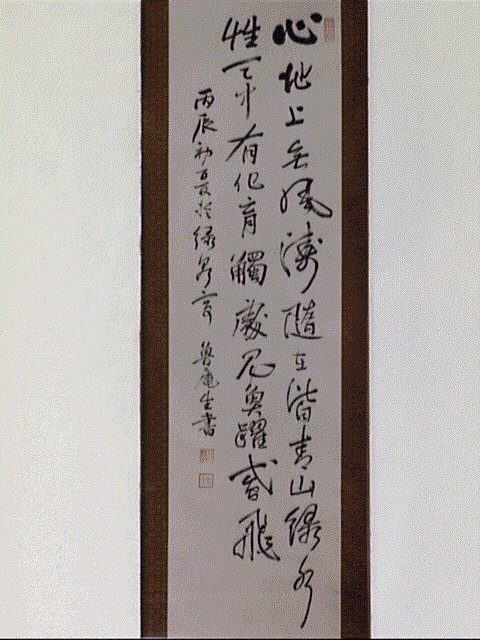 心地上無風濤隨在皆青山緑水
性天中有化育觸處見魚躍鳶飛
丙辰初夏於緑泉亭 魯庵生書